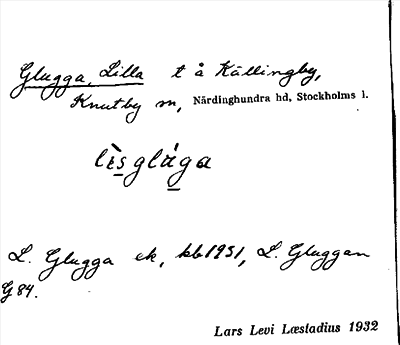 Glugga, Lilla t å Källingby,
Knutby sn, Närdinghundra hd, Stockholms l.
lɩ̀sglúga
L. Glugga ek, kb 1951, L. Gluggan
G 84.
Lars Levi Læstadius 1932